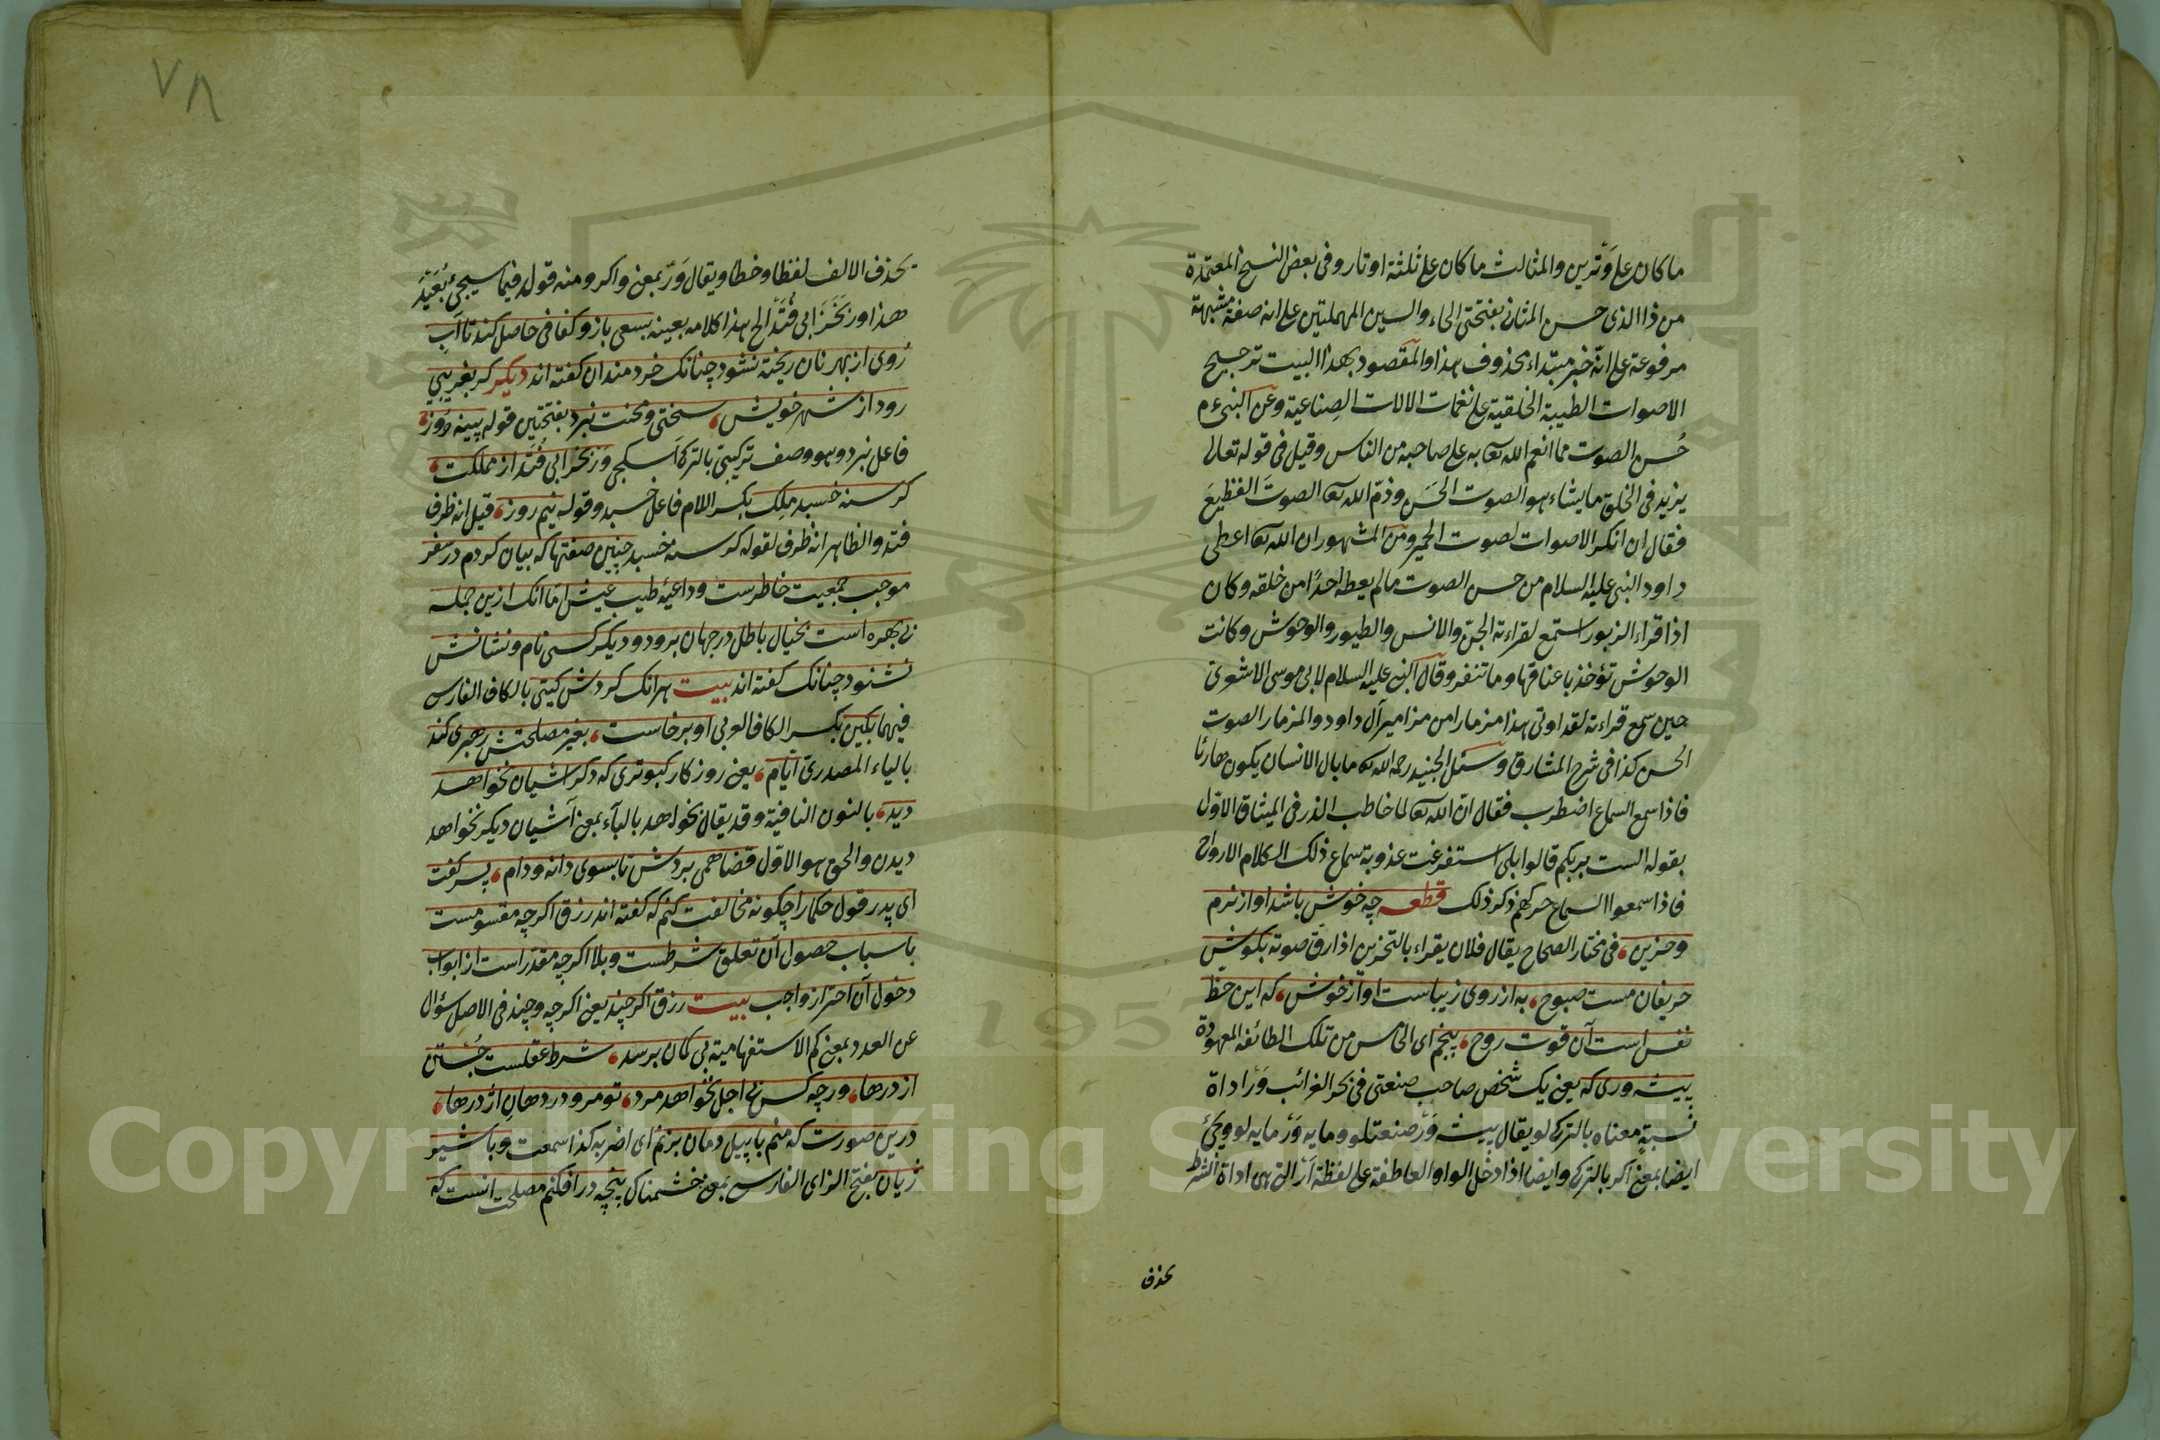 ما كان على وَتَرين والمثالث ما كان على ثلثة اوتار وفى بعض النسخ المعتمدة
من ذا الذى حسن المثانى بفتحتى الحاء والسين المهملتين على انه صفة مشبهة
مرفوعة على انّه خبر مبتداء محذوف هذا والمقصود بهذا البيت ترجيح
الاصوات الطيبة الخلقية على نغمات الالات الصِناعية وعن النبىء م
حُسن الصوت مما انعم الله تعا به على صاحبه من الناس وقيل فى قوله تعالى
يزيد فى الخلق ما يشاء هو الصوت الحسَن وذمّ الله تعا الصوتَ الفظيعَ
فقال ان انكر الاصوات لصوت الحمير ومن المشهور ان الله تعا اعطى
داود النبى عليه السلام من حسن الصوت ما لم يعطه احدًا من خلقه وكان
اذا قراء الزبور استمع لقراءته الجن والانس والطيور والوحوش وكانت
الوحوش تؤخذ باعناقها وما تنفر وقال النبى عليه السلام لابى موسى الاشعرى
حين سمع قراءته لقد اوتى هذا مزمارا من مزامير آل داود والمزمار الصوت
الحسن كذا فى شرح المشارق وسئل الجنيد رحمه الله تعا ما بال الانسان يكون هادئا
فاذا سمع السماع اضطرب فقال انّ الله تعا لما خاطب الذر فى الميثاق الاوّل
بقوله الست بربكم قالوا بلى استفرغت عذوبة سماع ذلك الكلام الارواح
فاذا سمعوا السماع حركهم ذكر ذلك قطعه چه خوش باشد اواز نرم
وحزين، فى مختار الصحاح يقال فلان يقراء بالتحزين اذا ارق صوته بكوش
حريفان مست صبوح، به از روى زيباست اواز خوش، كه اين حظ
نفس است آن قوت روح، پنجم اى الخامس من تلك الطائفة المعهودة
پيشه ورى كه يعنى يك شخص صاحب صنعتى فى بحر الغرائب وَرْ اداة
نسبةٍ معناه بالتركى لو يقال پيشه وَرْ صنعتلو ومايه وَرْ مايه لو ويجئ
ايضا بمعنى اكر بالتركى وايضا اذا دخل الواو العاطفة على لفظة اَرْ التى هى اداة الشرط
بحذف
٧٨
بحذف الالف لفظا وخطا ويقال وَرْ بمعنى واكر ومنه قوله فيما سيجئ بُعَيْدَ
هذا ور بَخَرَابى فُتَد الخ هذا كلامه بعينه بسعى بازو كفافى حاصل كند تا آب
رُوى از بهر نان ريخته نشود چنانك خردمندان كفته اند ديكر كر بغريبى
رود از شهر خويش، سختى ومحنت نبرد بفتحتين قوله پينه دوز،
فاعل نبرد وهو وصف تركيبى بالتركى اسكيجى وربخرابى فُتَد از مملكت،
كرسنه خسبد مَلِك بكسر اللام فاعل خسبد وقوله نيم روز، قيل انه ظرف
فتد والظاهر انه ظرف لقوله كرسنه خسبد چنين صفتها كه بيان كردم در سفر
موجب جمعيت خاطرست وداعيهٔ طيب عيش امّا انك ازين جمله
بى بهره است بخيال باطل در جهان برود وديكر كسى نام ونشانش
نشنود چنانك كفته اند بيت هرانك كردش كيتى بالكاف الفارسى
فيهما بكين بكسر الكاف العربى او برخاست، بغير مصلحتش رهبرى كند
بالياء المصدرى ايّام، يعنى روزكار كبوترى كه دكر اشيان نخواهد
ديد، بالنون النافية وقد يقال بخواهد بالباء بمعنى آشيان ديكر نخواهد
ديدن والحق هو الاوّل قضا همى بردش تا بسوى دانه ودام، پسر كفت
اى پدر قول حكما را چكونه مخالفت كنم كه كفته اند رزق اكرچه مقسومست
باسباب حصول آن تعلق شرطست وبلا اكرچه مقدّر است از ابواب
دخول آن احتراز واجب بيت رزق اكر چند يعنى اكرچه وچند فى الاصل سؤال
عن العدد بمعنى كم الاستفهامية بى كمان برسد، شرط عقلست جُستن
از درها، ورچه كس بى اجل نخواهد مرد، تو مرو در دهان اژدرها،
درين صورت كه منم با پيل دمان بزنم اى اضربه كذا سمعت وبا شير
ژيان بفتح الزاى الفارسى بمعنى خشمناك پنجه درافكنم مصلحت انست كه